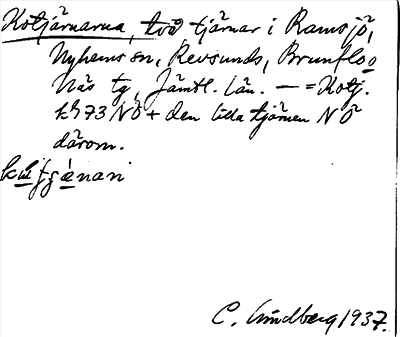 Kotjärnarna, två tjärnar i Ramsjö,
Nyhems sn, Revsunds, Brunflo o
Näs tg, Jämtl. län. — = Kotj.
kh 73 NÖ + den lilla tjärnen NÖ
därom.
C. Lindberg 1937.